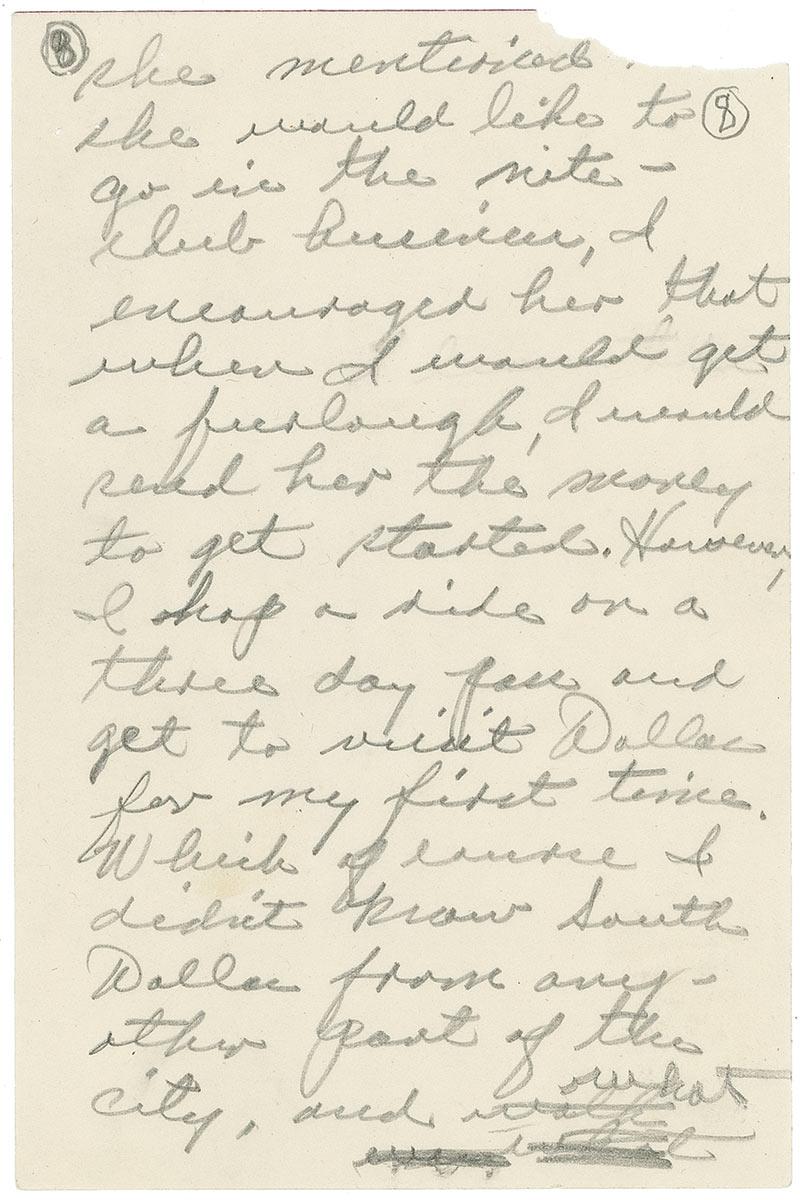 8 she mentioned.
she would like to 8
go in the nite-
club business, I
encouraged her that
when I would get
a furlough, I would
send her the money
to get started. However,
I shop a ride on a
three day pass and
get to visit Dallas
for my first time.
Which of course I
didn't know South
Dallas from any-
other part of the
what
city, and